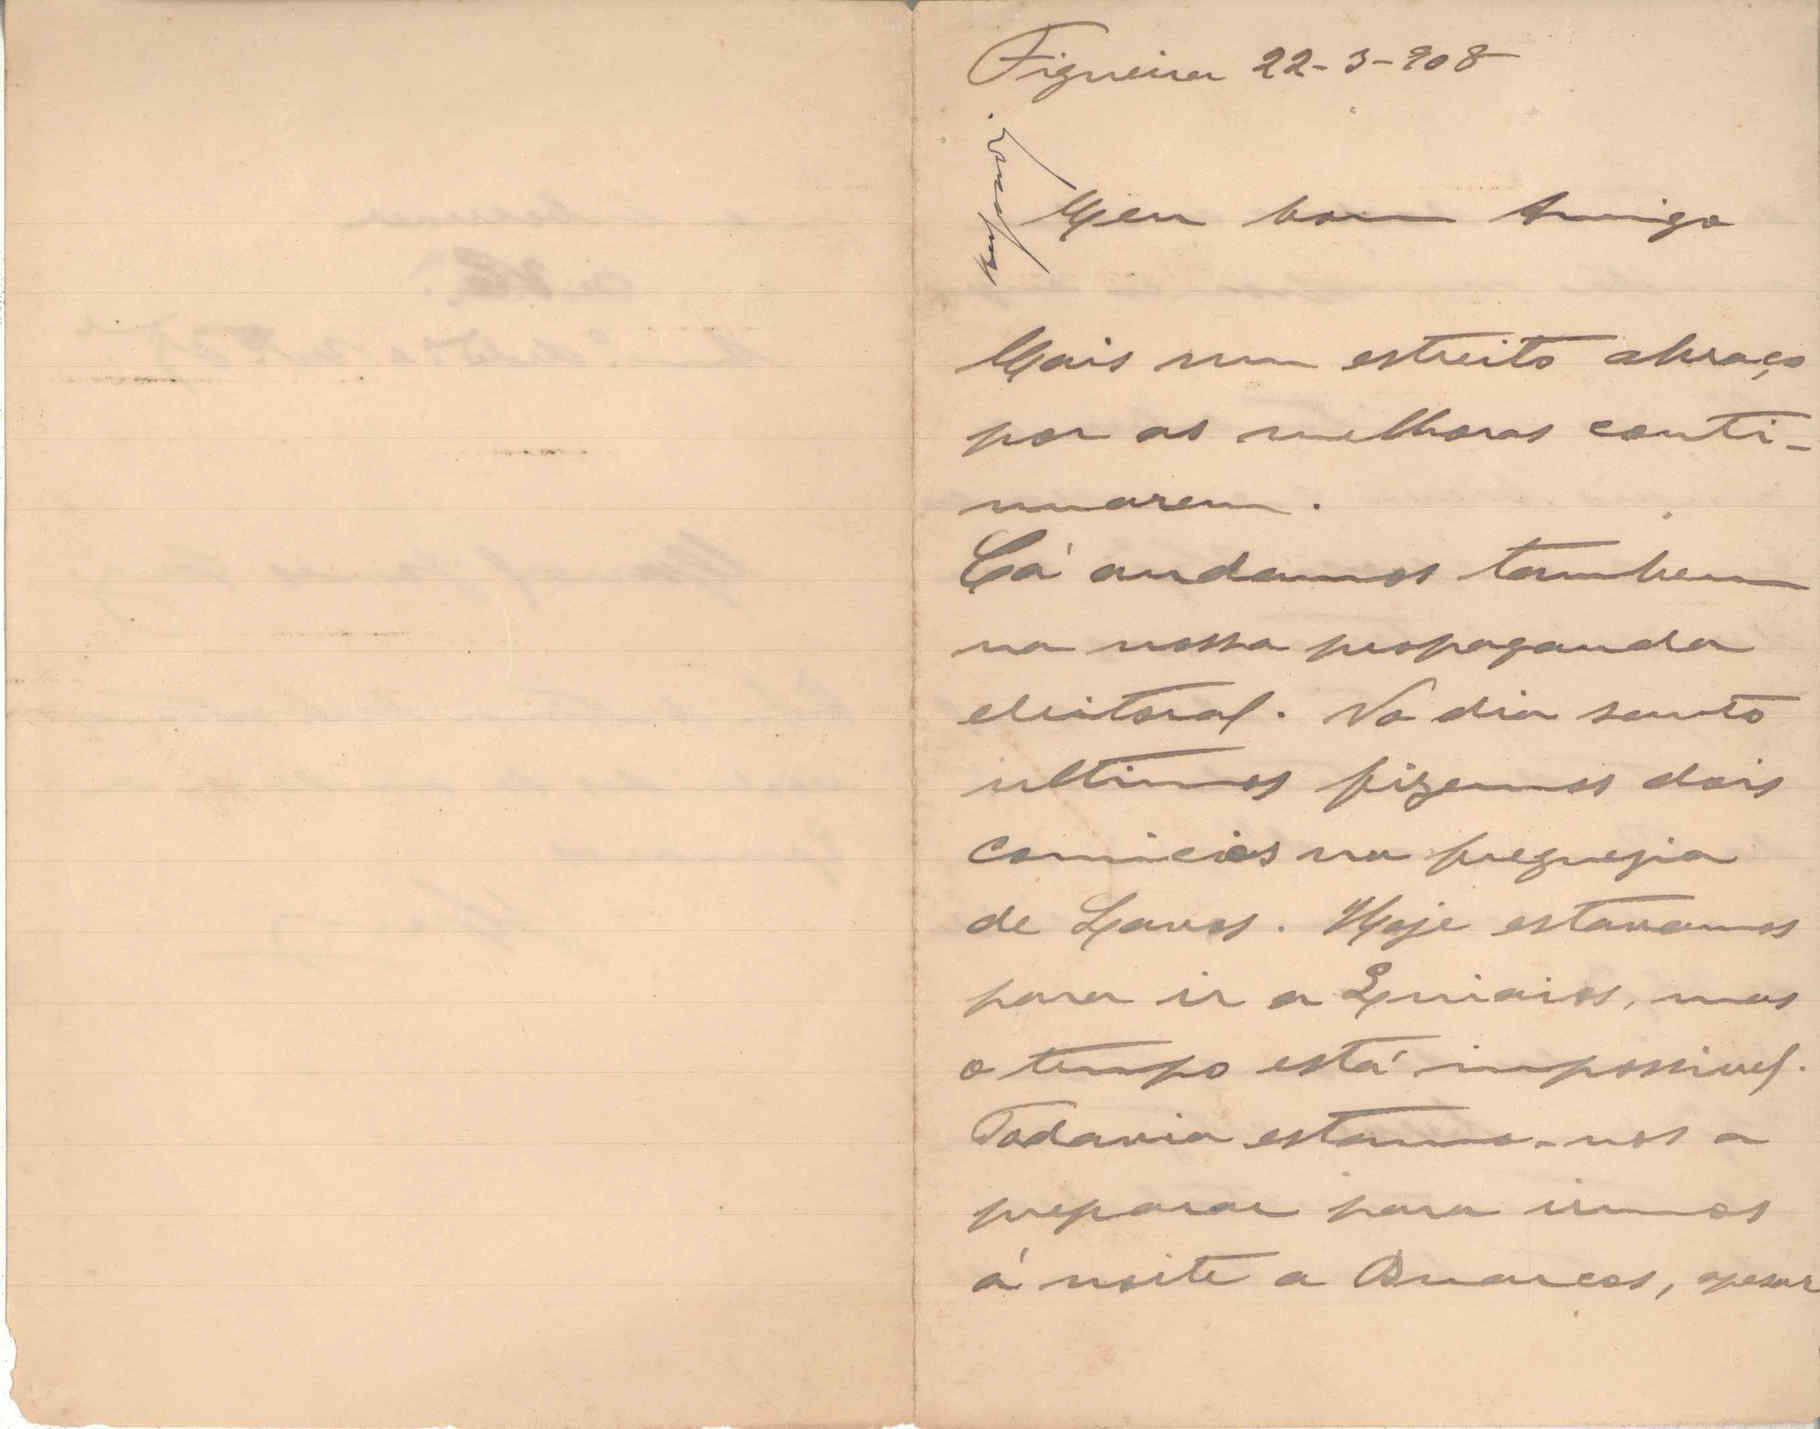 Figueira 22-3-908
Meu bom Amigo
Mais um estreito abraço
por as melhoras conti-
nuarem.
Cá andamos tambem
na nossa propaganda
eleitoral. No dia santo
ultimos fizemos dois
comicios na freguezia
de Lavos. Hoje estavamos
para ir a Quiaios, mas
o tempo está impossivel.
Todavia estamo-nos a
preparar para irmos
á noite a Buarcos, apesar